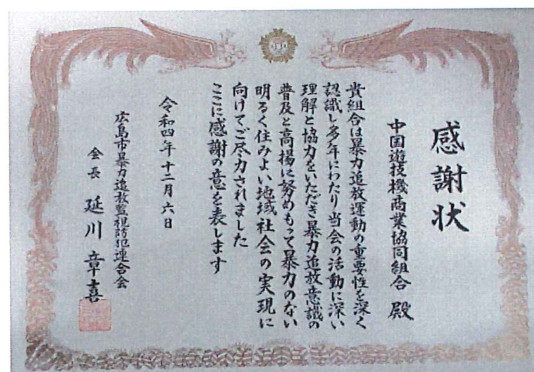 感謝状
中国遊技機商業協同組合 殿
貴組合は暴力追放運動の重要性を深く
認識し多年にわたり当会の活動に深い
理解と協力をいただき暴力追放意識の
普及と高揚に努めもって暴力のない
明るく住みよい地域社会の実現に
向けてご尽力されました
ここに感謝の意を表します
令和四年十二月六日
広島市暴力追放監視防犯連合会
会長 延川章喜